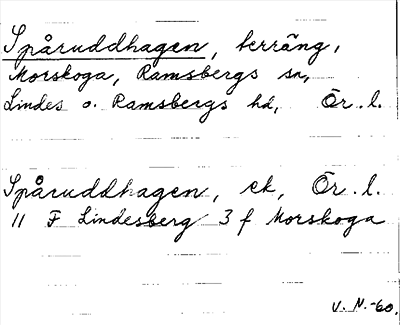 Spåruddhagen, terräng,
Morskoga, Ramsbergs sn,
Lindes o. Ramsbergs hd, Ör. l.
Spåruddhagen, ek, Ör. l.
11 F Lindesberg 3 f Morskoga
V. N. -60.